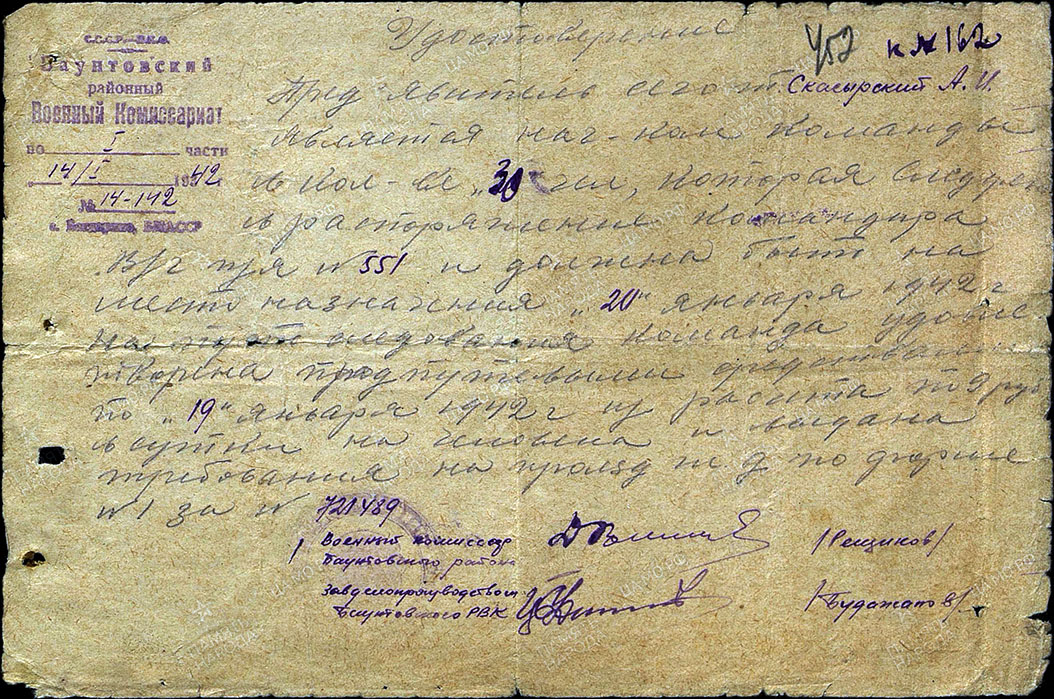 С.С.С.Р. — Н.К.О.
Баунтовский
районный
Военный Комиссариат
по I части
14/I 1942
№ 14-142
с. Багдарино, БМАССР
452 к № 162
Удостоверение
Пред'явитель сего т. Скасырский А. И.
является нач-ком команды
в кол-ве "30" чел, которая следует
в распоряжение командира
В/ч п/я № 551 и должна быть на
место назначения "20" января 1942 г
На пути следования команда удовле
творена продпутевыми средствами
по "19" января 1942 г из расчета по руб
в сутки на человека и выдана
требования на проезд ж.д по форме
№ 1 за № 721489
Военный комиссар
Баунтовского района /Рещиков/
Завделопроизводством
Баунтовского РВК /Будажапов/
ПАМЯТЬ НАРОДА
ЦАМО.РФ